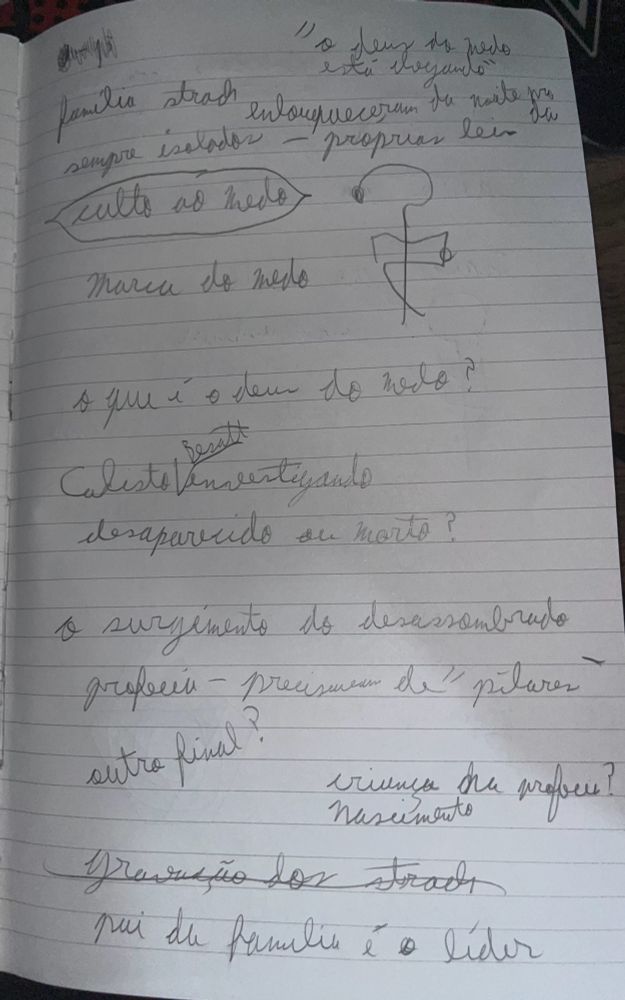 "o deus do medo
está chegando"
família strach
enlouqueceram da noite pro
dia
sempre isolados — proprias leis
culto ao medo
marca do medo
o que é o deus do medo?
Calisto investigando
desaparecido ou morto?
o surgimento do desassombrado
profecia — precisavam de "pilares"
outro final?
criança da profecia?
nascimento
gravação dos strach
pai da família é o líder